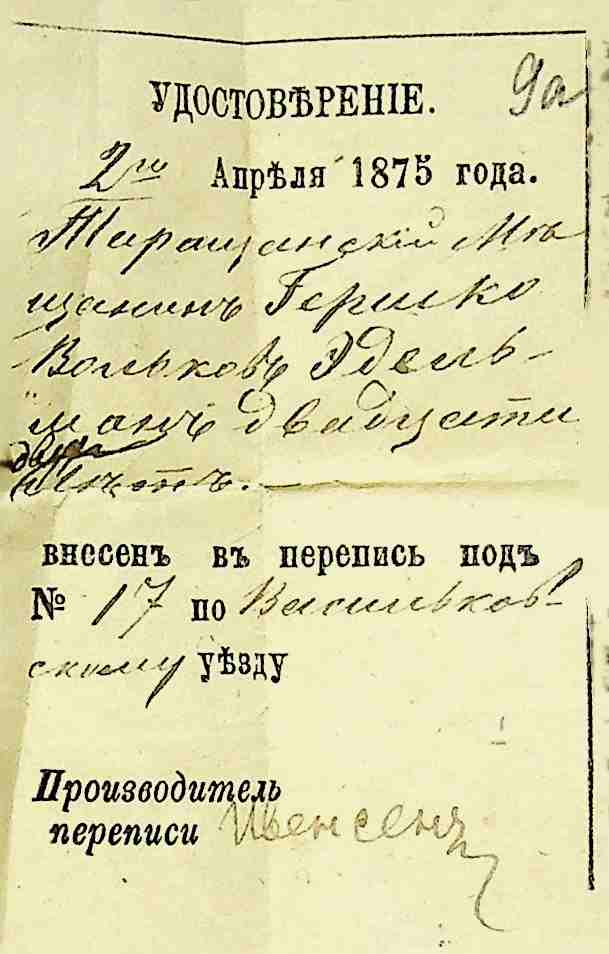 9а
УДОСТОВѢРЕНІЕ.
2го Апрѣля 1875 года.
Таращанскій Мѣ
щанинъ Гершко
Вольковъ Эдель-
манъ двадцати
два
лѣтъ.
внесенъ въ перепись подъ
№ 17 по Васильков-
скому уѣзду
Производитель
переписи